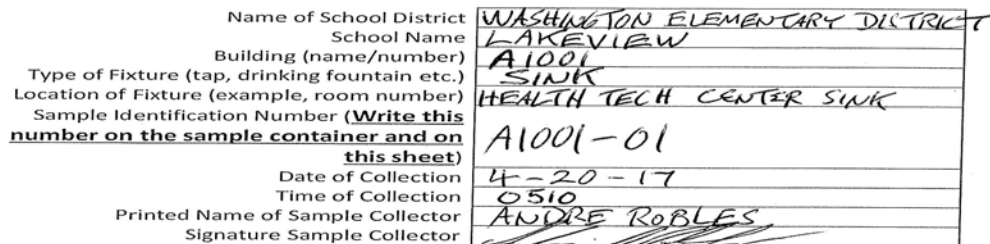 Name of School District WASHINGTON ELEMENTARY DISTRICT
School Name LAKEVIEW
Building (name/number) A1001
Type of Fixture (tap, drinking fountain etc.) SINK
Location of Fixture (example, room number) HEALTH TECH CENTER SINK
Sample Identification Number (Write this
number on the sample container and on
this sheet) A1001-01
Date of Collection 4-20-17
Time of Collection 0510
Printed Name of Sample Collector ANDRE ROBLES
Signature Sample Collector